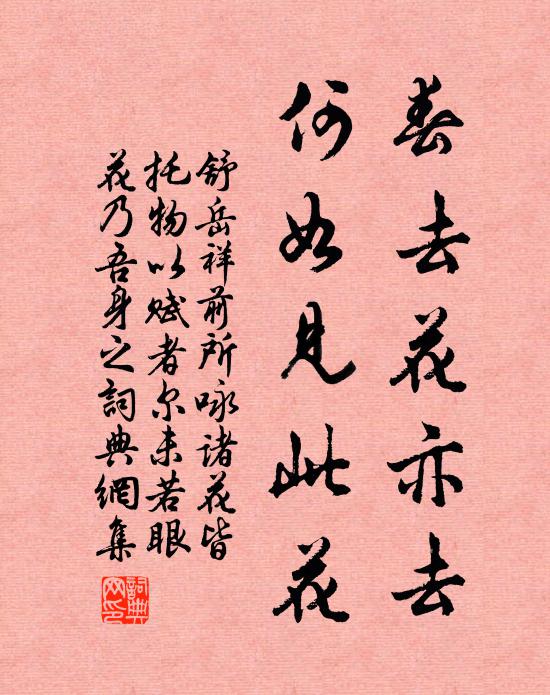 春去花亦去
何如見此花
舒岳祥前所咏諸花皆
托物以赋者尔未若眼
花乃吾身之詞典網集
詞典網印